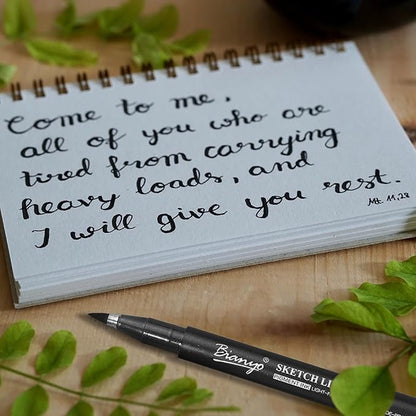 Come to me,
all of you who are
tired from carrying
heavy loads, and
I will give you rest.
Mt. 11,28
Bianyo® SKETCH LI
PIGMENT INK